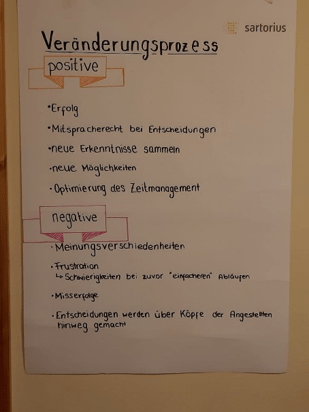 sartorius
Veränderungsprozess
positive
• Erfolg
• Mitspracherecht bei Entscheidungen
• neue Erkenntnisse sammeln
• neue Möglichkeiten
• Optimierung des Zeitmanagement
negative
• Meinungsverschiedenheiten
• Frustration
↳ Schwierigkeiten bei zuvor "einfacheren" Abläufen
• Misserfolge
• Entscheidungen werden über Köpfe der Angestellten
hinweg gemacht